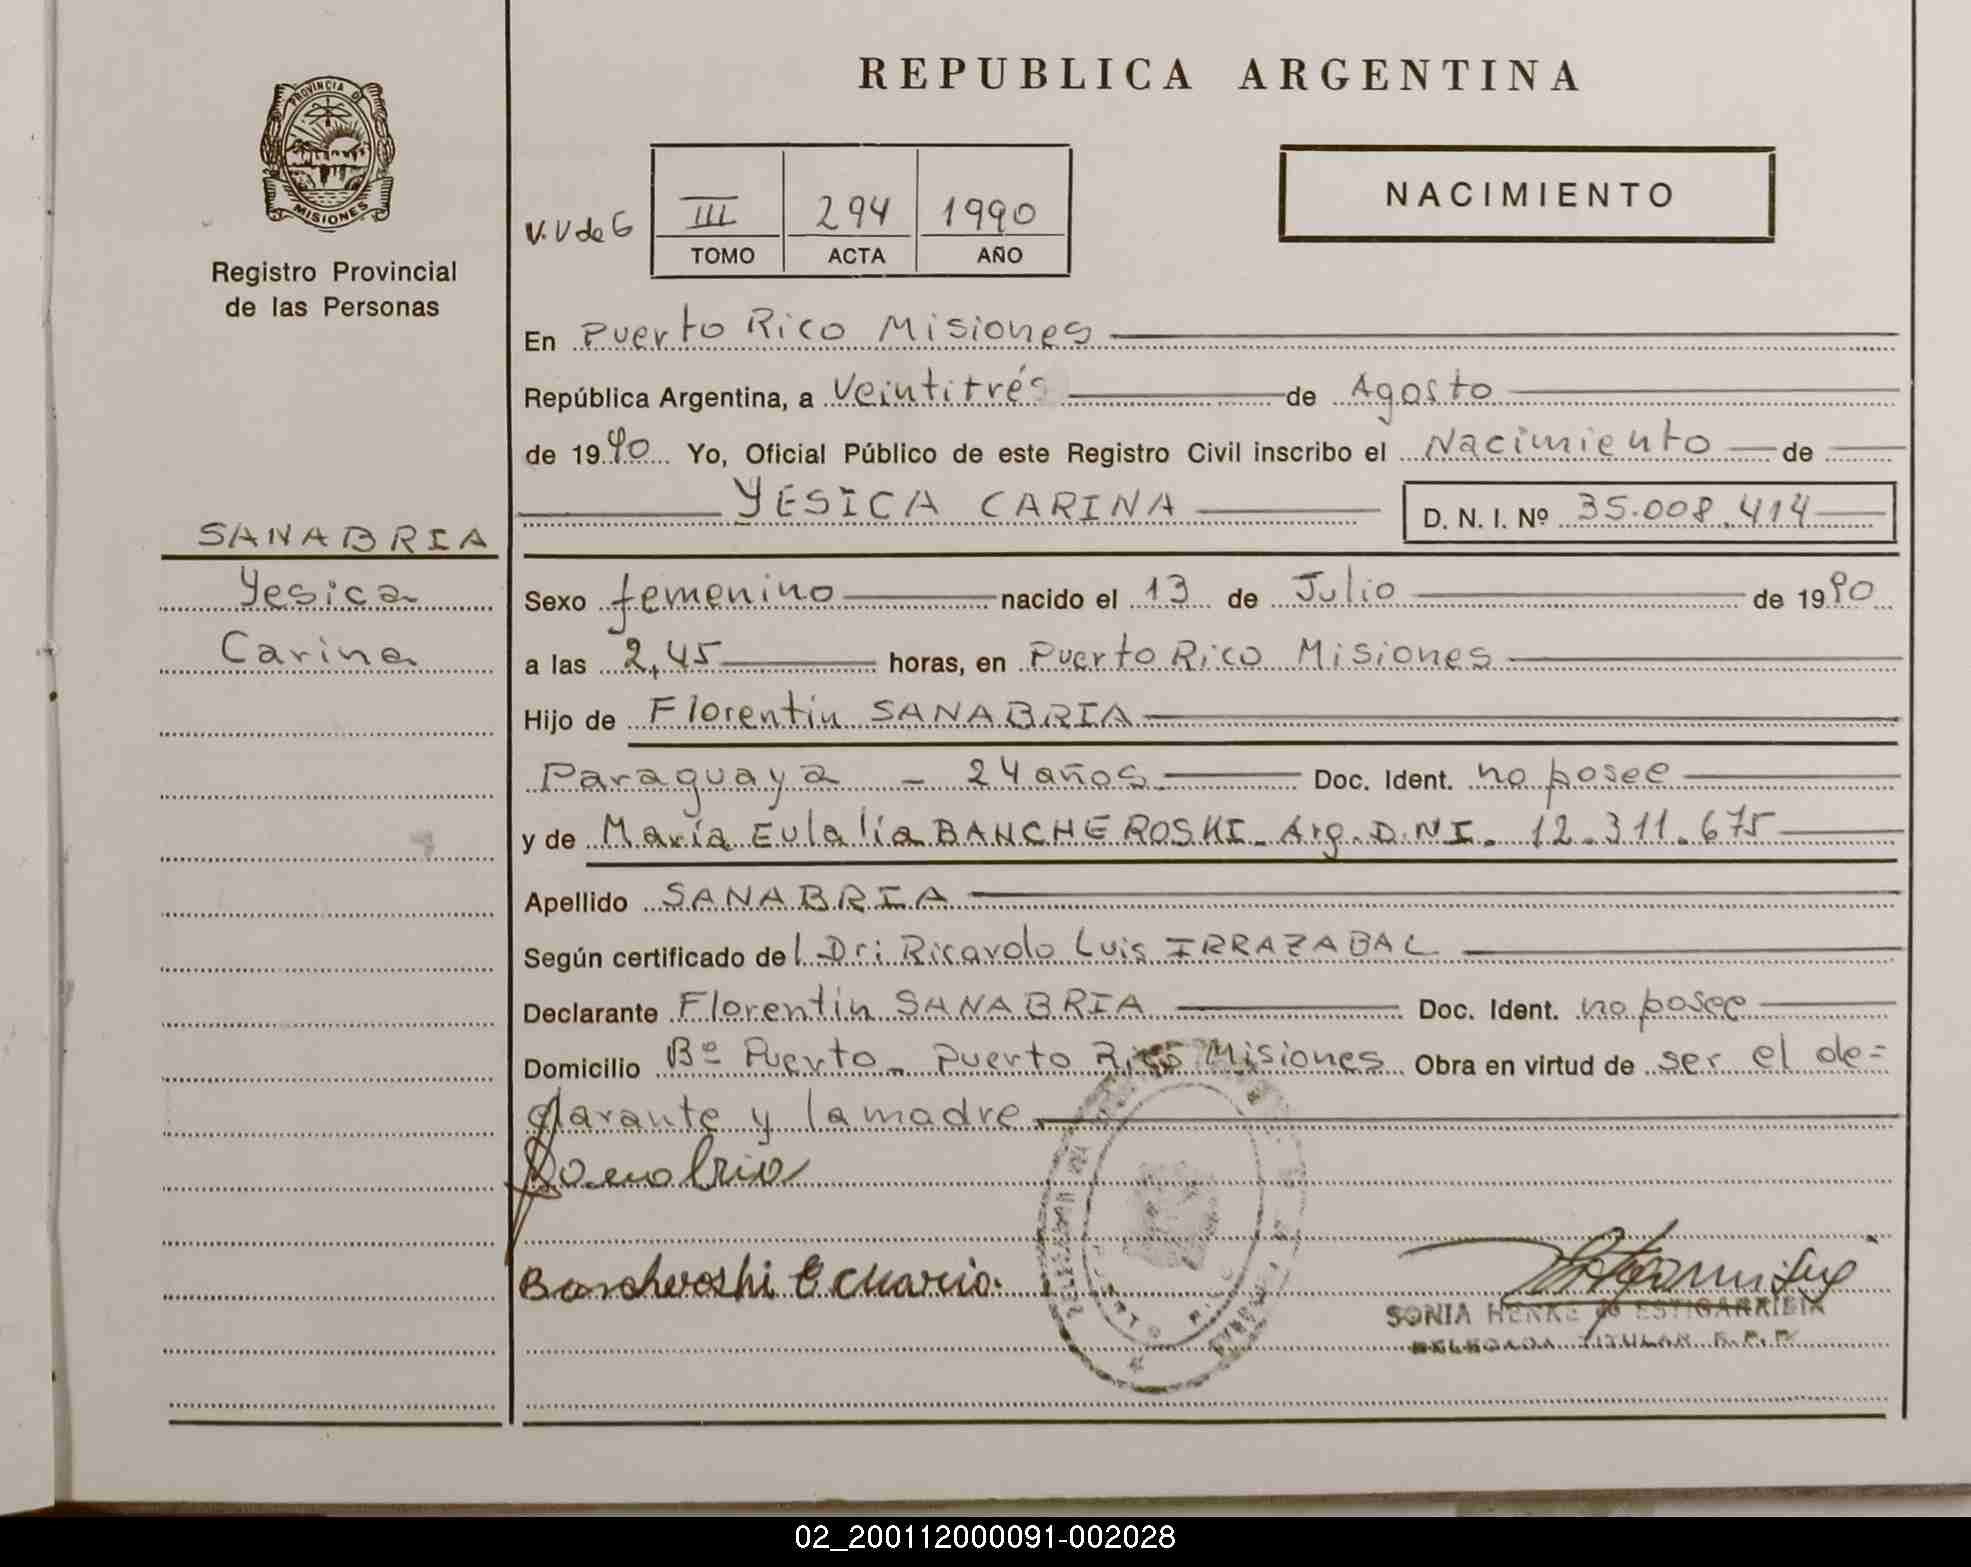 REPUBLICA ARGENTINA
PROVINCIA DE
MISIONES
Registro Provincial
de las Personas
V.V de G
III 294 1990
TOMO ACTA AÑO
NACIMIENTO
En Puerto Rico Misiones
República Argentina, a Veintitrés de Agosto
de 1990 Yo, Oficial Público de este Registro Civil inscribo el Nacimiento de
YESICA CARINA D. N. I. Nº 35.008.414
SANABRIA
Yesica
Carina
Sexo femenino nacido el 13 de Julio de 1990
a las 2,45 horas, en Puerto Rico Misiones
Hijo de Florentin SANABRIA
Paraguaya - 24 años Doc. Ident. no posee
y de María Eulalia BANCHEROSKI - Arg. D.N.I. 12.311.675
Apellido SANABRIA
Según certificado del Dr: Ricardo Luis IRRAZABAL
Declarante Florentin SANABRIA Doc. Ident. no posee
Domicilio Bº Puerto - Puerto Rico Misiones Obra en virtud de ser el de=
clarante y la madre
Sanabria
Bancheroski E Maria
SONIA HENKE de ESTIGARRIBIA
DELEGADA TITULAR R.P.P.
02_200112000091-002028